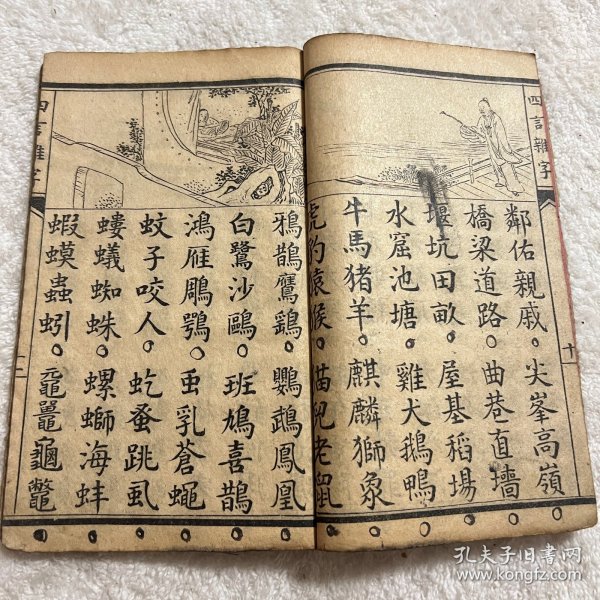 四言雜字
鄰佑親戚。尖峯高嶺
橋梁道路。曲巷直墻
堰坑田畝。屋基稻場
水窟池塘。雞犬鵝鴨
牛馬猪羊。麒麟獅象
虎豹猿猴。猫兒老鼠
十
四言雜字
鴉鵲鷹鷂。鸚鵡鳳凰
白鷺沙鷗。班鳩喜鵲
鴻雁鵰鶚。虫乳蒼蠅
蚊子咬人。虼蚤跳虱
螻蟻蜘蛛。螺螄海蚌
蝦蟆蟲蚓。黿鼉龜鱉
十一
孔夫子旧書网
www.kongfz.com